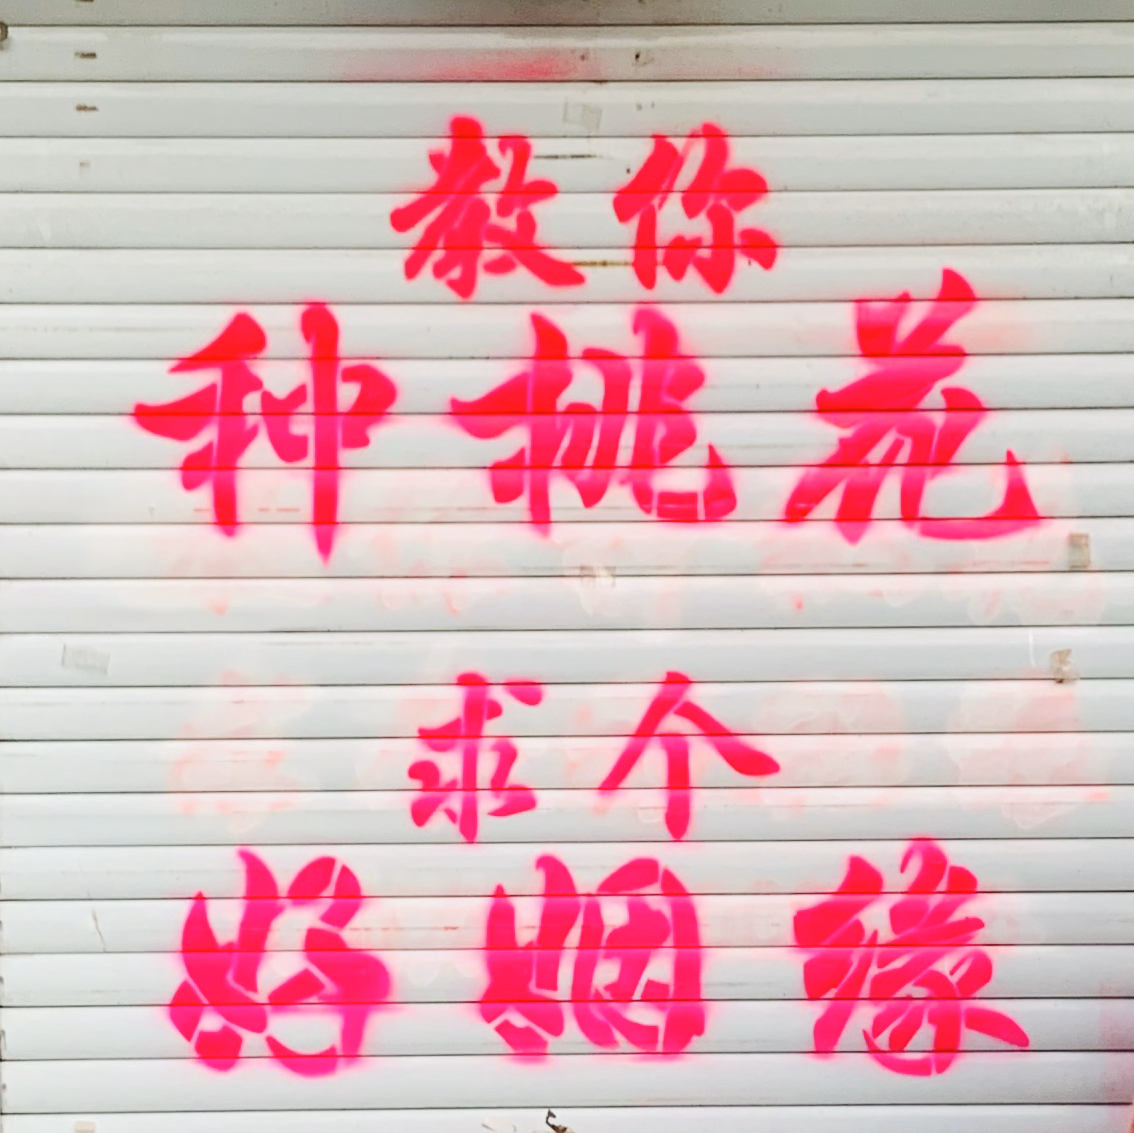 教你
种桃花
求个
好姻缘